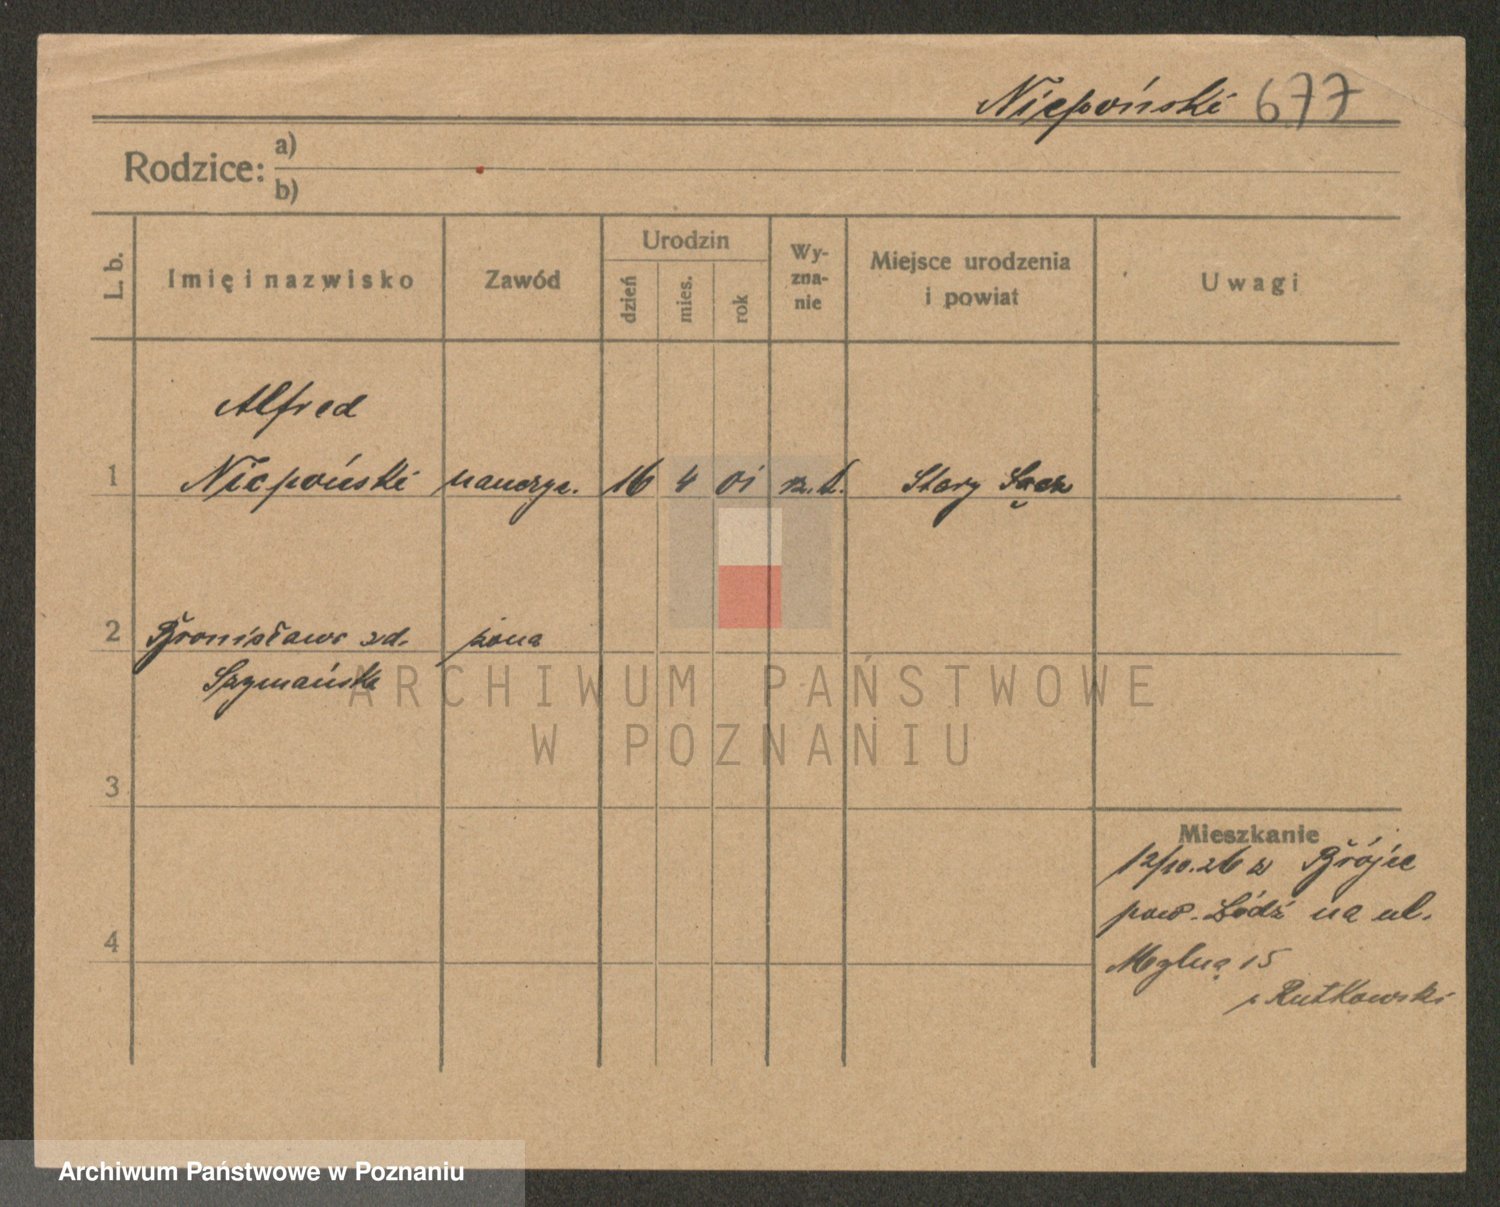 Niepoński 677
Rodzice: a)
b)
L. b.
Imię i nazwisko
Zawód
Urodzin
dzień
mies.
rok
Wy-
zna-
nie
Miejsce urodzenia
i powiat
Uwagi
Alfred
1 Niepoński nauczyc. 16 4 01 rz. k. Stary Sącz
2 Bronisława zd. żona
Szymańska
ARCHIWUM PAŃSTWOWE
W POZNANIU
3
Mieszkanie
12/10.26 z Brójce
pow. Łódź na ul.
4
Mylną 15
Rutkowski
Archiwum Państwowe w Poznaniu